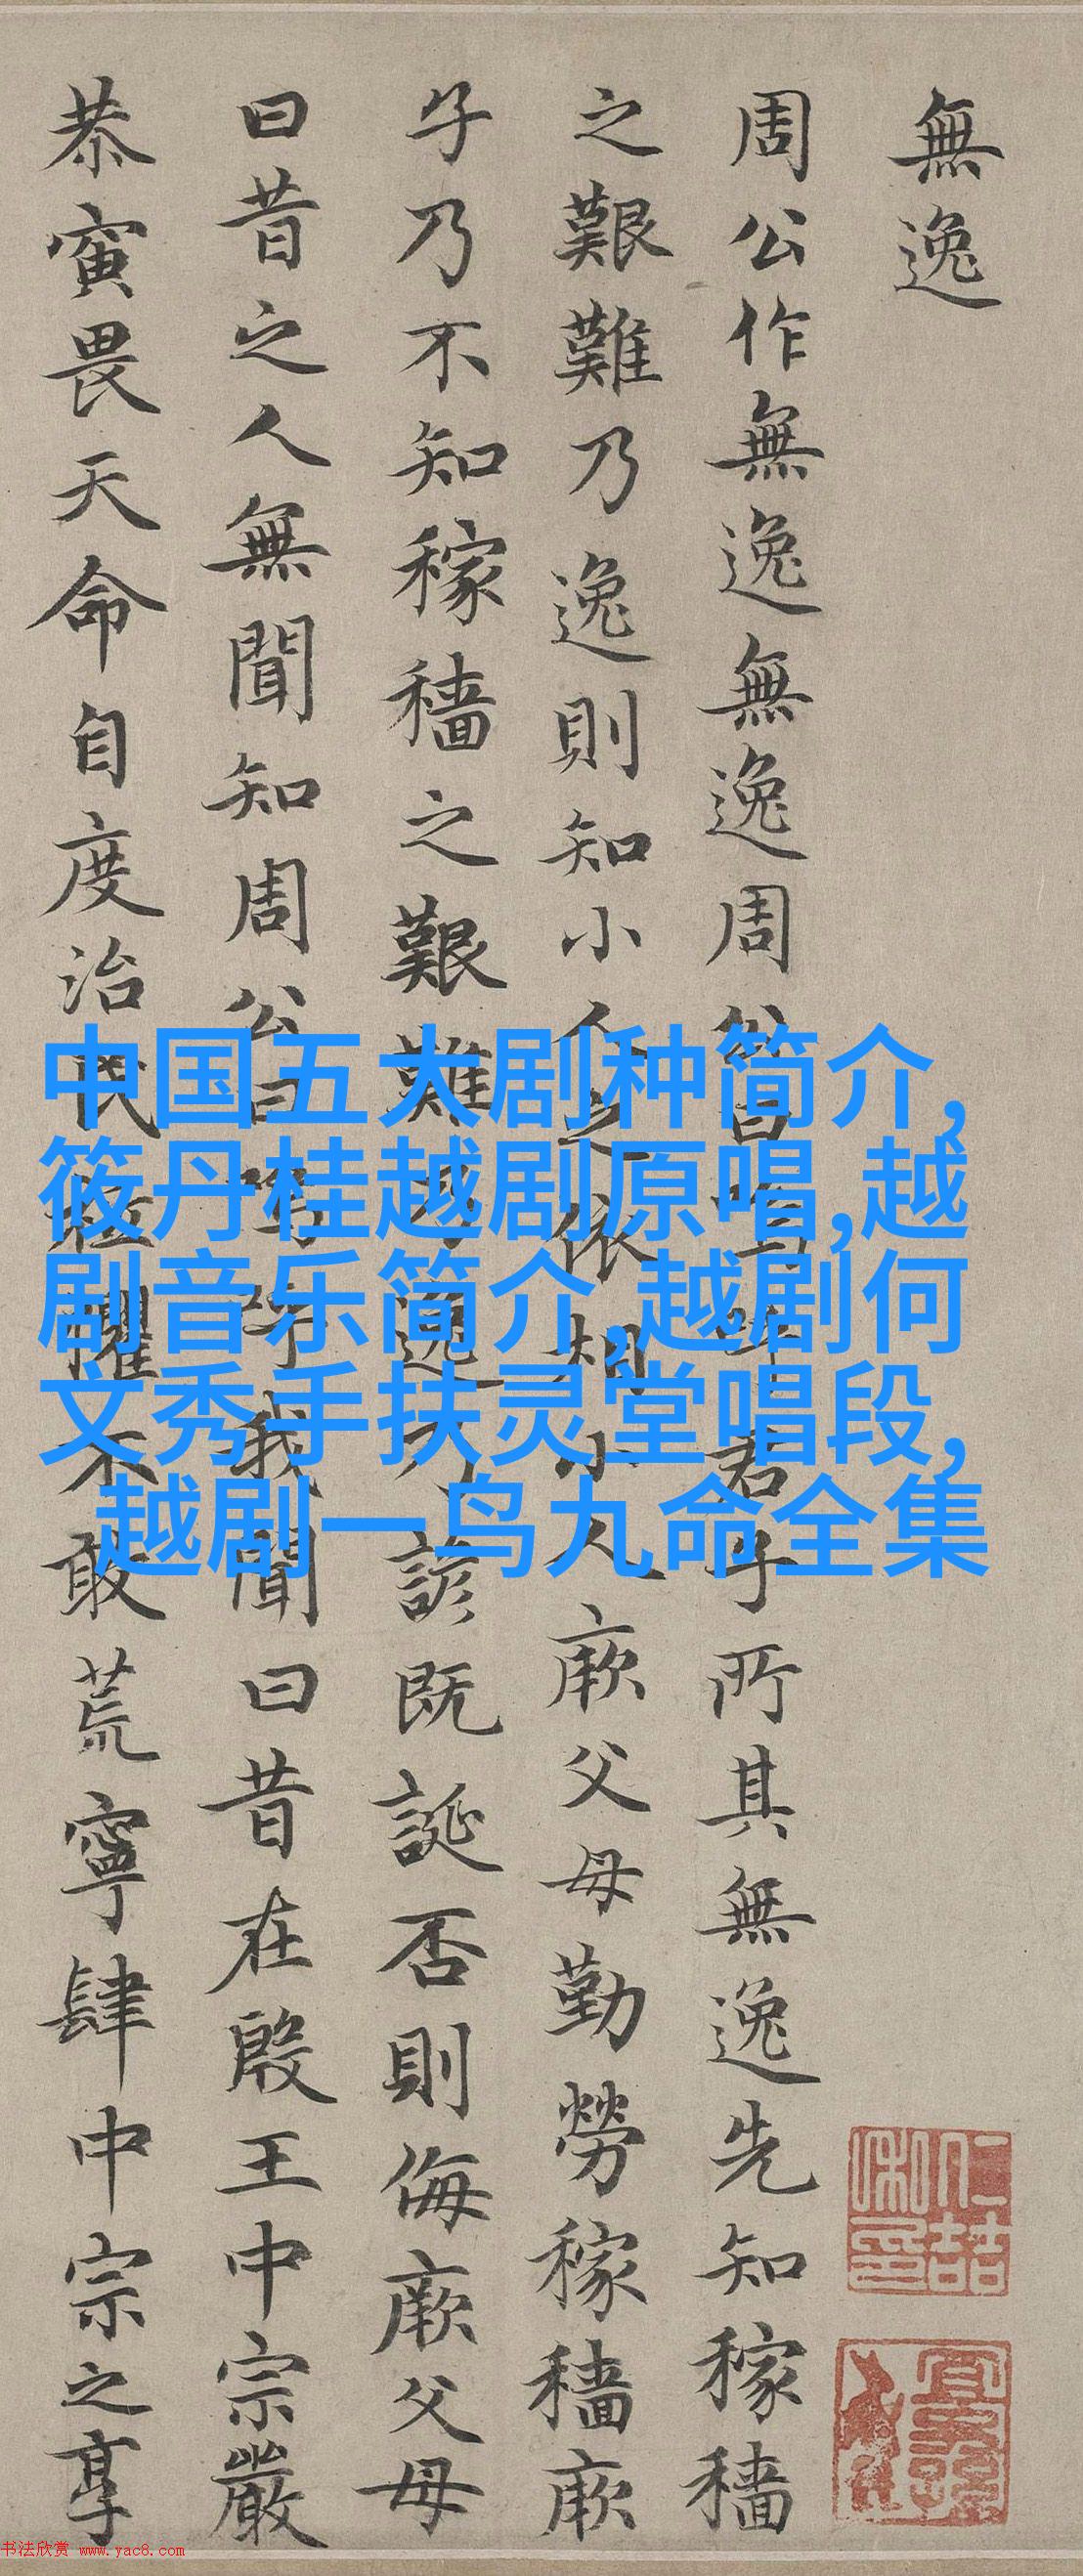 無逸
周公作無逸無逸周公曰嗚呼君子所其無逸先知稼穡
之艱難乃逸則知小人之依相小人厥父母勤勞稼穡厥
子乃不知稼穡之艱難乃逸乃諺既誕否則侮厥父母
曰昔之人無聞知周公曰嗚呼我聞曰昔在殷王中宗嚴
恭寅畏天命自度治民祗懼不敢荒寧肆中宗之享
中国五大剧种简介,
筱丹桂越剧原唱,越
剧音乐简介,越剧何
文秀手扶灵堂唱段,
越剧一鸟九命全集
书法欣赏 www.yac8.com